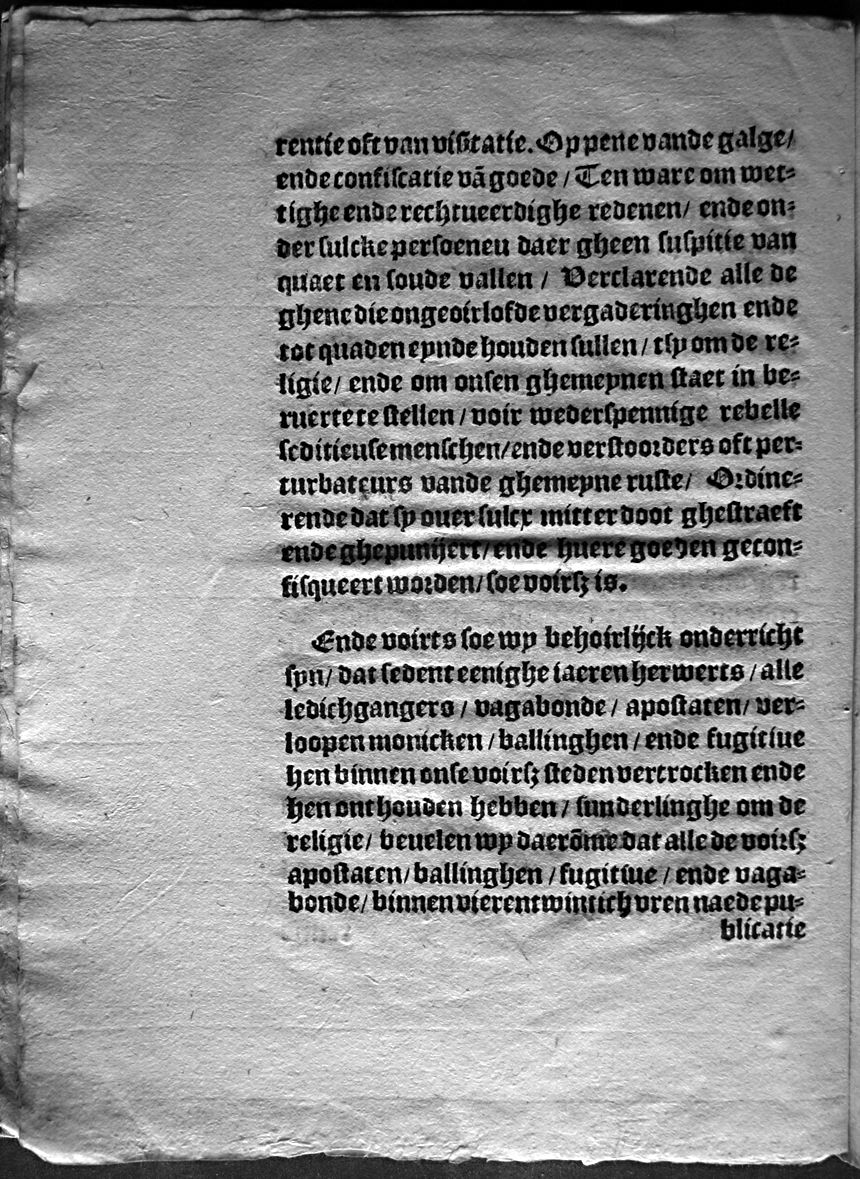 rentie oft van visitatie. Op pene vande galge/
ende confiscatie vā goede / Ten ware om wet⸗
tighe ende rechtueerdighe redenen/ ende on⸗
der sulcke persoeneu daer gheen suspitie van
quaet en soude vallen / Verclarende alle de
ghene die ongeoirlofde vergaderinghen ende
tot quaden eynde houden sullen / tsy om de re⸗
ligie/ ende om onsen ghemeynen staet in be⸗
ruerte te stellen / voir wederspennige rebelle
seditieuse menschen/ende verstoorders oft per⸗
turbateurs vande ghemeyne ruste/ Ordine⸗
rende dat sy ouer sulcx mitter doot ghestraeft
ende ghepunijert/ende huere goeden gecon⸗
fisqueert worden/ soe voirsz is.
Ende voirts soe wy behoirlijck onderricht
syn/ dat sedent eenighe iaeren herwerts / alle
ledichgangers / vagabonde / apostaten/ ver⸗
loopen monicken / ballinghen / ende fugitiue
hen binnen onse voirsz steden vertrocken ende
hen onthouden hebben / sunderlinghe om de
religie/ beuelen wy daerōme dat alle de voirsz
apostaten/ ballinghen / fugitiue / ende vaga⸗
bonde/ binnen vierentwintich vren nae de pu⸗
blicatie